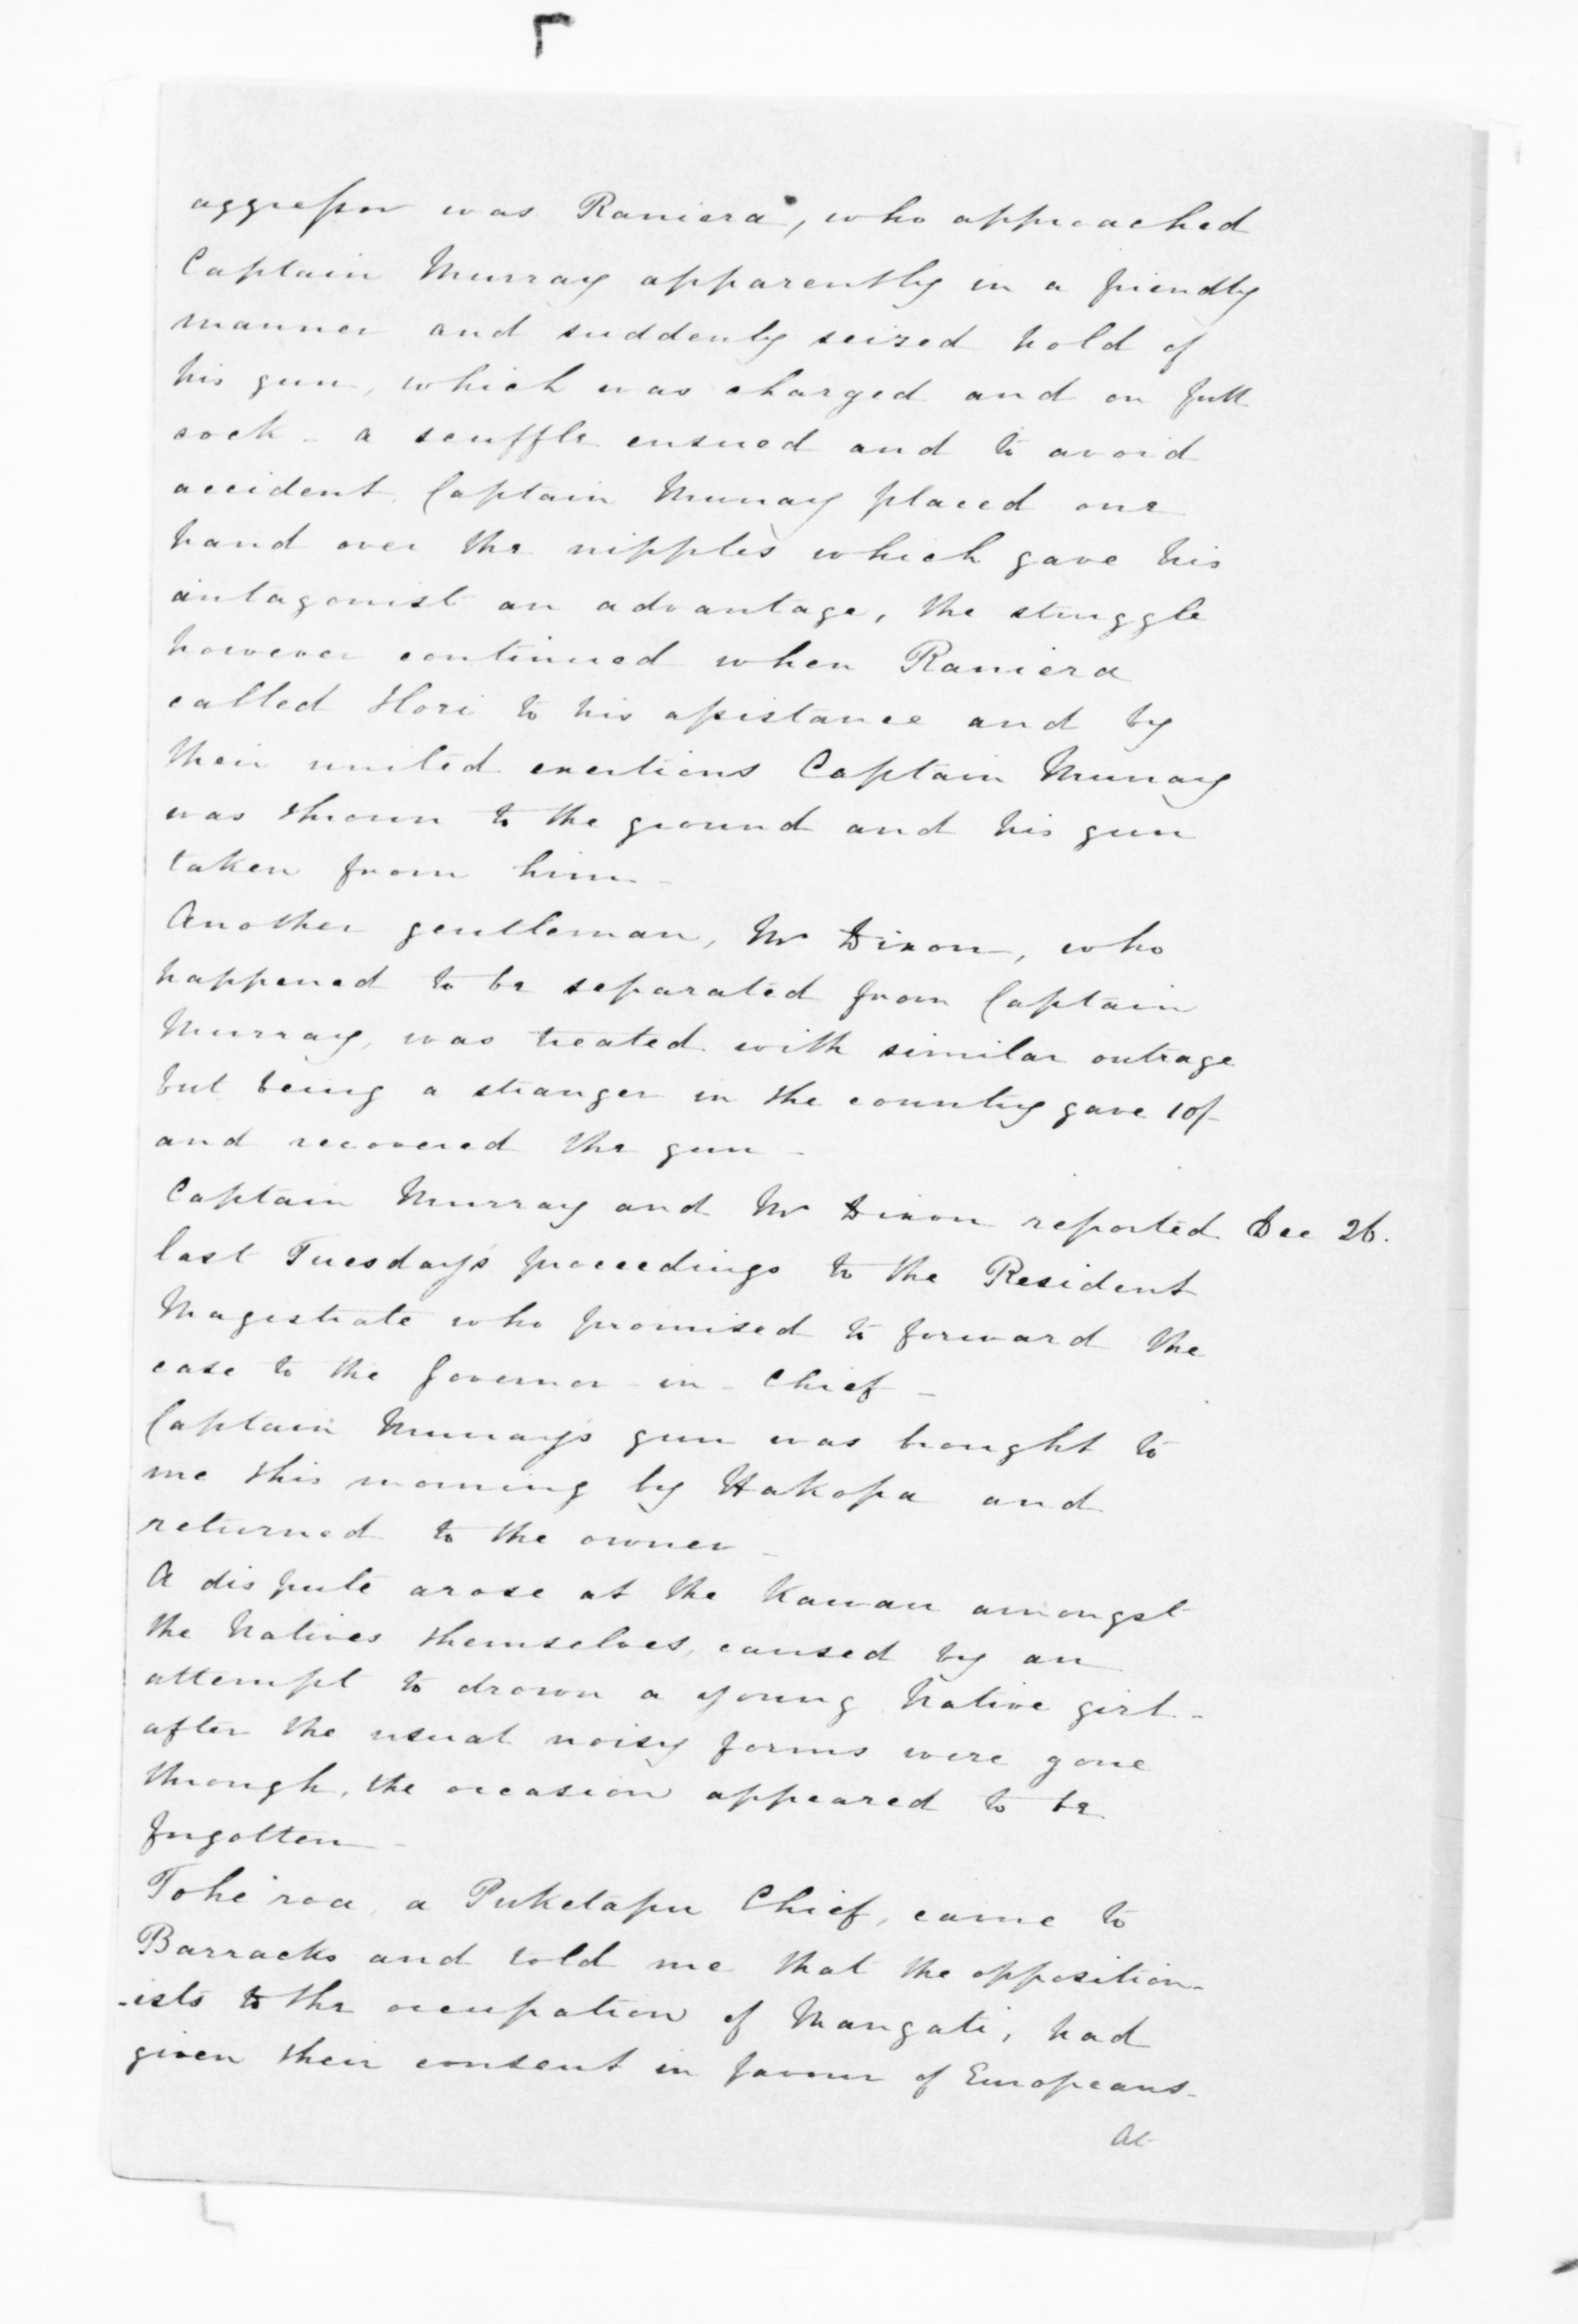 aggressor was Raniera, who approached
Captain Murray apparently in a friendly
manner and suddenly seized hold of
his gun, which was charged and on full
cock - a scuffle ensued and to avoid
accident, Captain Murray placed one
hand over the nipples which gave his
antagonist an advantage, the struggle
however continued when Raniera
called Hori to his assistance and by
their united exertions Captain Murray
was thrown to the ground and his gun
taken from him -
Another gentleman, Mr Dixon, who
happened to be separated from Captain
Murray, was treated with similar outrage
but being a stranger in the country gave 10/-
and recovered the gun -
Captain Murray and Mr Dixon reported Dec 26.
last Tuesday's proceedings to the Resident
Magistrate who promised to forward the
case to the Governor - in - Chief -
Captain Murray's gun was brought to
me this morning by Hakopa and
returned to the owner -
A dispute arose at the Kawau amongst
the Natives themselves, caused by an
attempt to drown a young Native girl -
after the usual noisy forms were gone
through, the occasion appeared to be
forgotten -
Tohe roa, a Puketapu Chief, came to
Barracks and told me that the opposition-
-ists to the occupation of Mangati, had
given their consent in favour of Europeans -
At